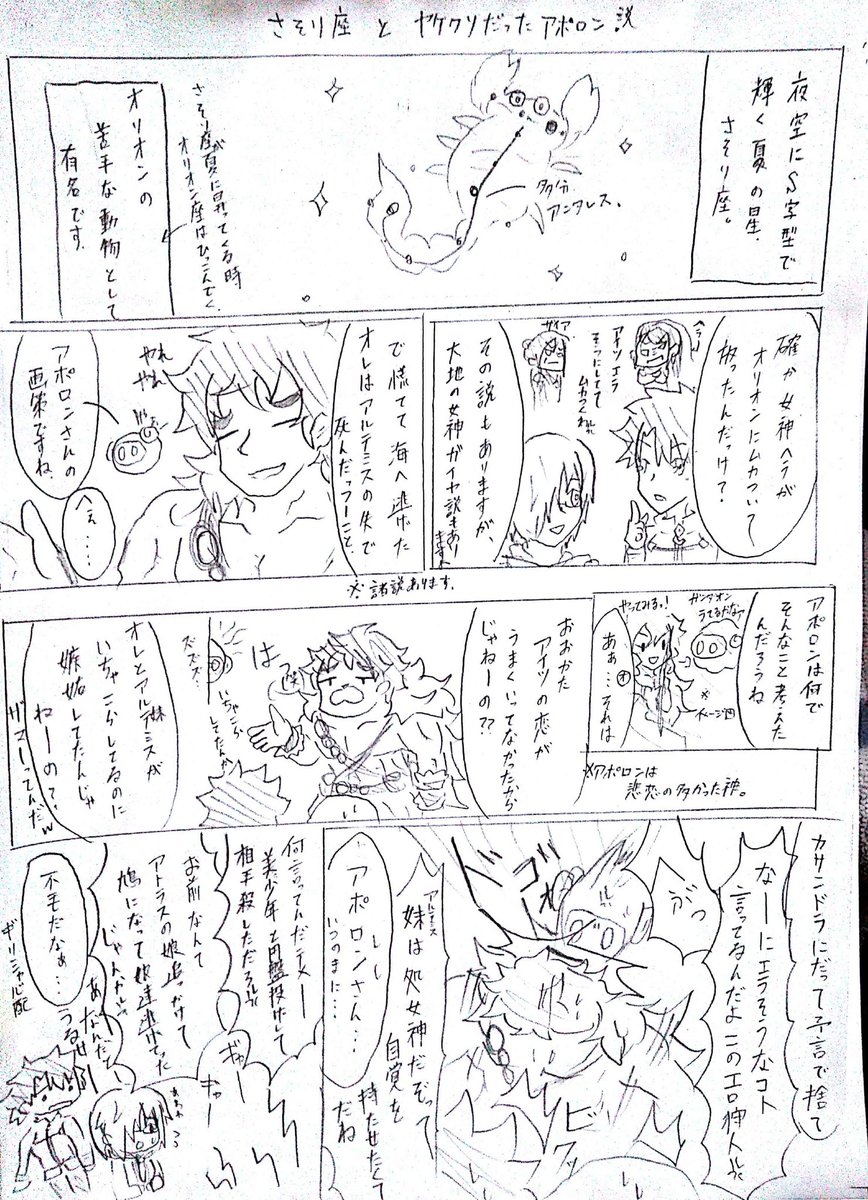 さそり座 と ヤケクソだったアポロン説
夜空にS字型で
輝く夏の星.
さそり座。
多分
アンタレス。
さそり座が夏に昇ってくる時
オリオン座はひっこんでく。
オリオンの
苦手な動物として
有名です.
確か女神ヘラが
オリオンにムカついて
放ったんだっけ?
アイツエラ
そうにしてて
ムカつくわ
ガイア
その説もありますが、
大地の女神ガイヤ説もあり
ます
で慌てて海へ逃げた
オレはアルテミスの矢で
死んだっつーこと.
やれ
やれ
アポロンさんの
画策ですね.
へぇ....
※諸説あります.
アポロンは何で
そんなこと考えた
んだろうね
やってみるっ!
※
イメージ図
あぁ...それは
※アポロンは
悲恋の多かった神。
おおかた
アイツの恋が
うまくいってなかったから
じゃねーの??
はっ
ズズズ.
いちゃこら
してたんかい
オレとアルテミスが
いちゃこらしてるのに
嫉妬してたんじゃ
ねーの?
ザマーってんだw
カサンドラにだって予言で捨て
なーにエラそうなコト
言ってるんだよこのエロ神人が
ぶっ
ドゴォ
ビクッ
アルテミス
妹は処女神だぞって
自覚を
持たせたくて
だね
アポロンさん...
いつのまに...
何言ってんだテメー
美少年と円盤投げして
相手殺しただろが
お前なんて
アトラスの娘追っかけて
鳩になって娘達逃げてった
じゃんか
あんだと
うるせー
ギャー
ギャー
不毛だなぁ...
ギリシャ心配